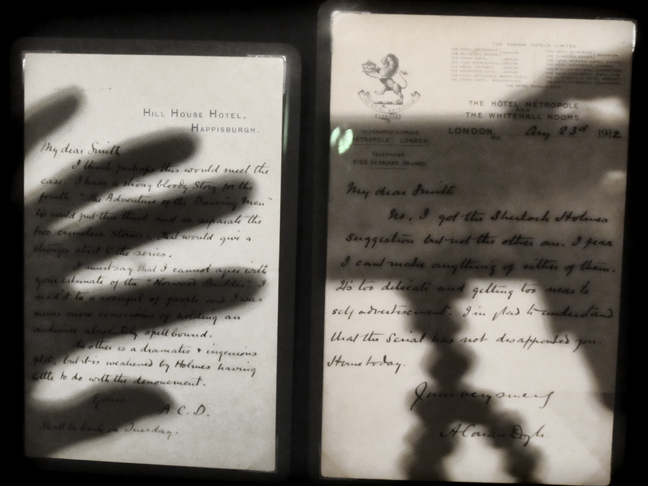 HILL HOUSE HOTEL,
HAPPISBURGH.
My dear Smith
I think perhaps this would meet the
case. I have a strong bloody Story for the
fourth "The Adventure of the Dancing Men"
We could put this third and so separate the
two crimeless stories. That would give a
stronger start to the series.
I must say that I cannot agree with
your estimate of the "Norwood Builder". I
read it to a roomful of people and I was
never more conscious of holding an
audience absolutely spell bound.
The other is a dramatic & ingenious
plot, but it is weakened by Holmes having
little to do with the denouement.
Yours
A C. D.
Shall be back on Tuesday.
THE GORDON HOTELS LIMITED
THE HÔTEL METROPOLE
AND
THE WHITEHALL ROOMS,
LONDON,
Aug 23rd 1912
TELEGRAPHIC ADDRESS
METROPOLE, LONDON
TELEPHONE
My dear Smith
No, I got the Sherlock Holmes
suggestion but not the other one. I fear
I cant make anything of either of them.
It's too delicate and getting too near to
self advertisement. I'm glad to understand
that the Serial has not disappointed you.
Home today.
Yours very sincerely
A Conan Doyle.